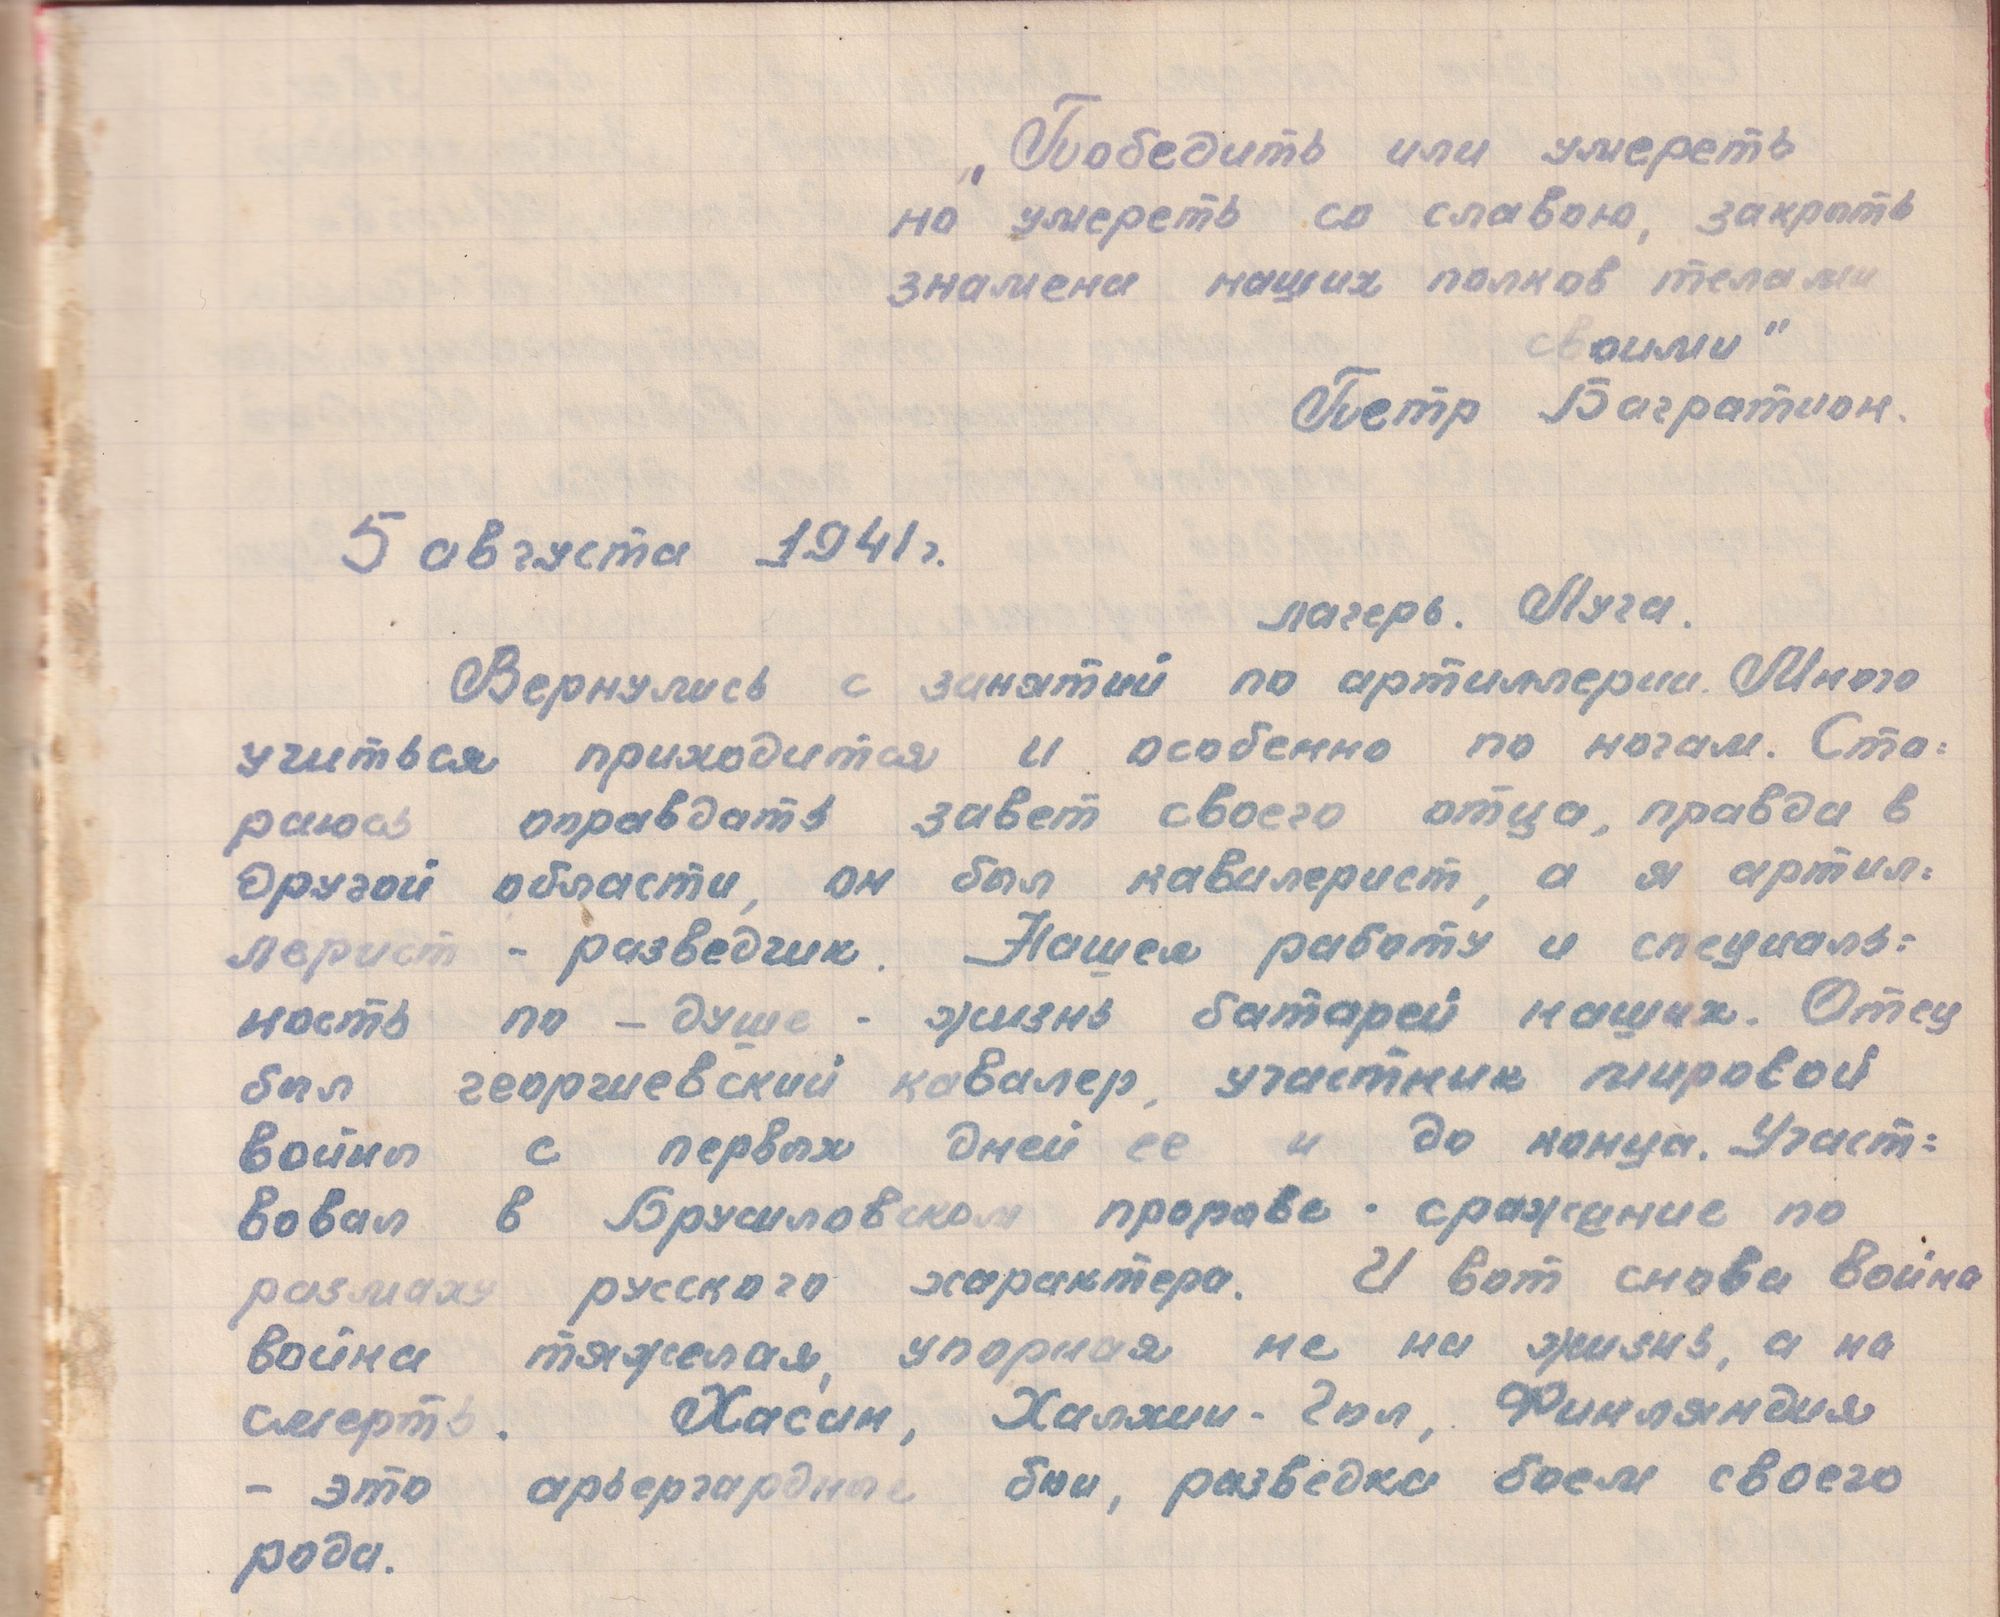 „Победить или умереть
но умереть со славою, закрыть
знамена наших полков телами
своими"
Петр Багратион.
5 августа 1941г.
лагерь. Луга.
Вернулись с занятий по артиллерии. Много
учиться приходится и особенно по ночам. Ста=
раюсь оправдать завет своего отца, правда в
другой области, он был кавалерист, а я артил=
лерист - разведчик. Нашел работу и специаль=
ность по - душе - жизнь батарей наших. Отец
был георгиевский кавалер, участник мировой
войны с первых дней ее и до конца. Участ=
вовал в Брусиловском прорыве - сражение по
размаху русского характера. И вот снова война
война тяжелая, упорная не на жизнь, а на
смерть. Хасан, Халхин-Гол, Финляндия
- это арьергардные бои, разведка боем своего
рода.